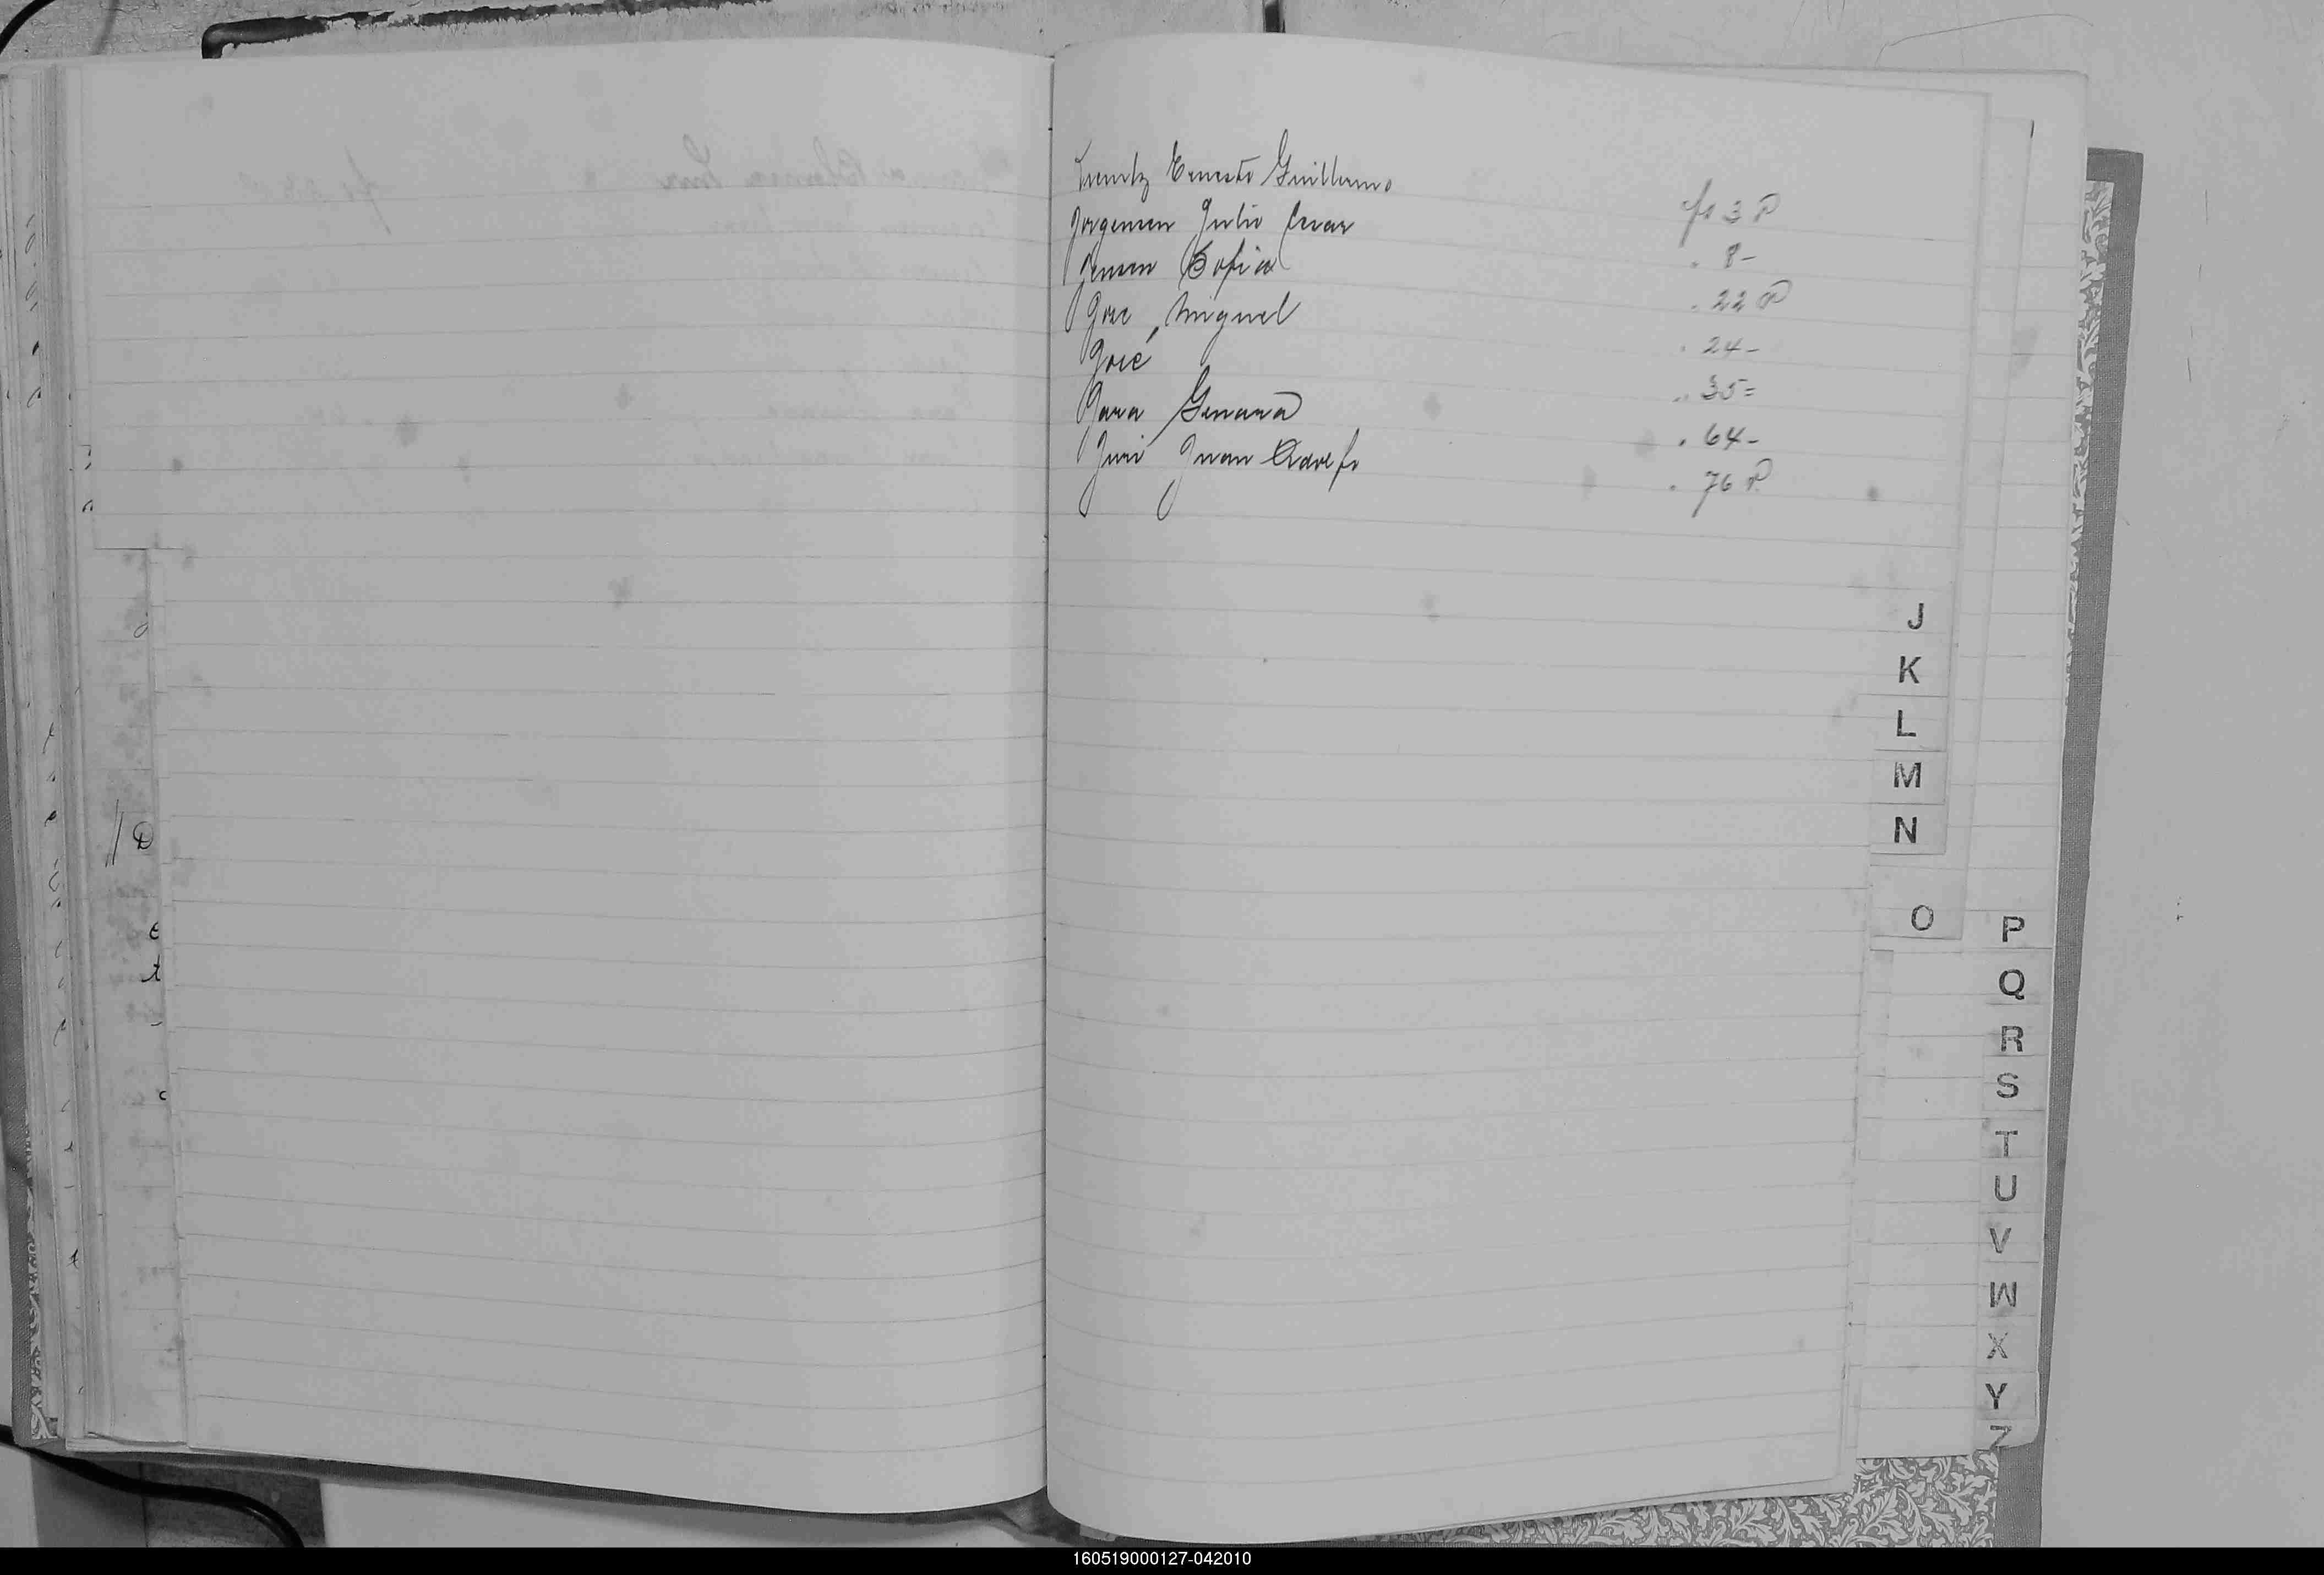 Ernesto Guillermo fs 3 P
Jorgensen Julio Cesar . 8-
Jensen Sofia . 22 P
Jose, Miguel . 24-
José . 35=
Jara Genara . 64-
Juri Juan Adolfo . 76 P
J
K
L
M
N
O
P
Q
R
S
T
U
V
W
X
Y
Z
160519000127-042010